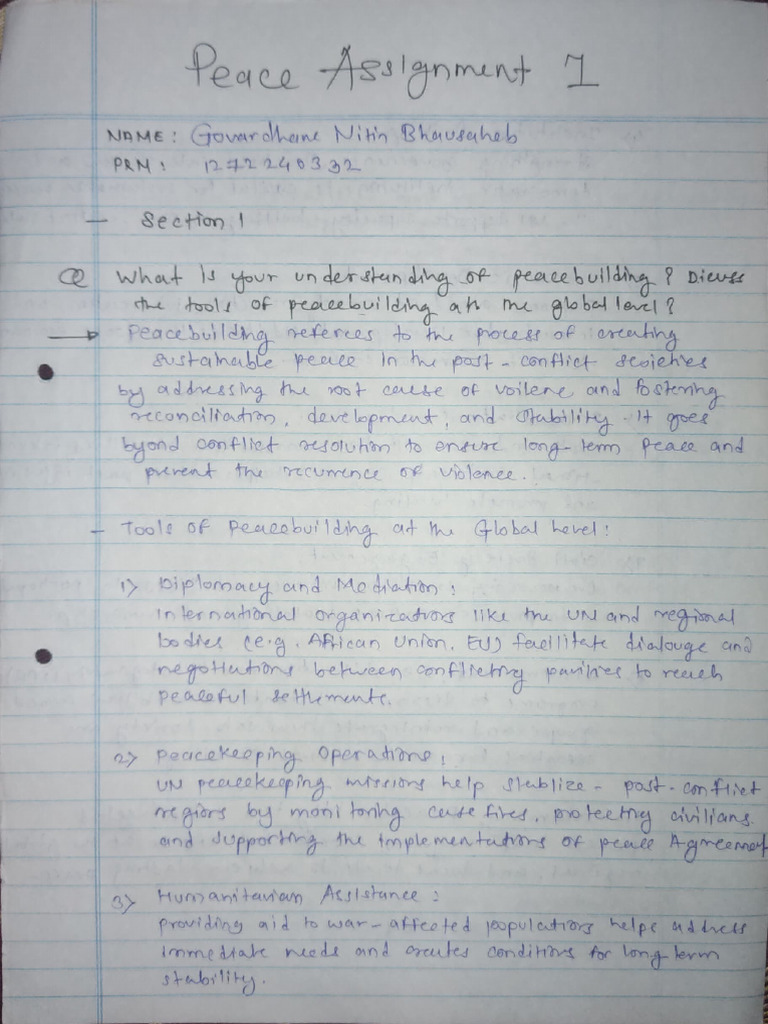 Peace Assignment 1
NAME: Govardhane Nitin Bhausaheb
PRN: 12722240332
- Section 1
Q What is your understanding of peacebuilding? Dicuss
the tools of peacebuilding ath the global level?
→ Peacebuilding referees to the process of creating
sustainable peace in the post-conflict societies
by addressing the root cause of voilene and fostering
reconciliation, development, and stability. It goes
byond conflict resolution to ensure long-term peace and
prevent the recurrence of violence.
- Tools of Peacebuilding at the Global Level:
1) Diplomacy and Mediation:
International organizations like the UN and regional
bodies (e.g. African Union, EU) facilitate dialouge and
negotiations between conflicting parities to reach
peaceful settlements.
2) Peacekeeping Operations:
UN peacekeeping missions help stablize - post-conflict
regions by monitoring cease fires, protecting civilians.
and supporting the implementations of peace Agreement
3) Humanitarian Assistance:
providing aid to war-affected populations helps address
immediate needs and creates conditions for long term
stability.